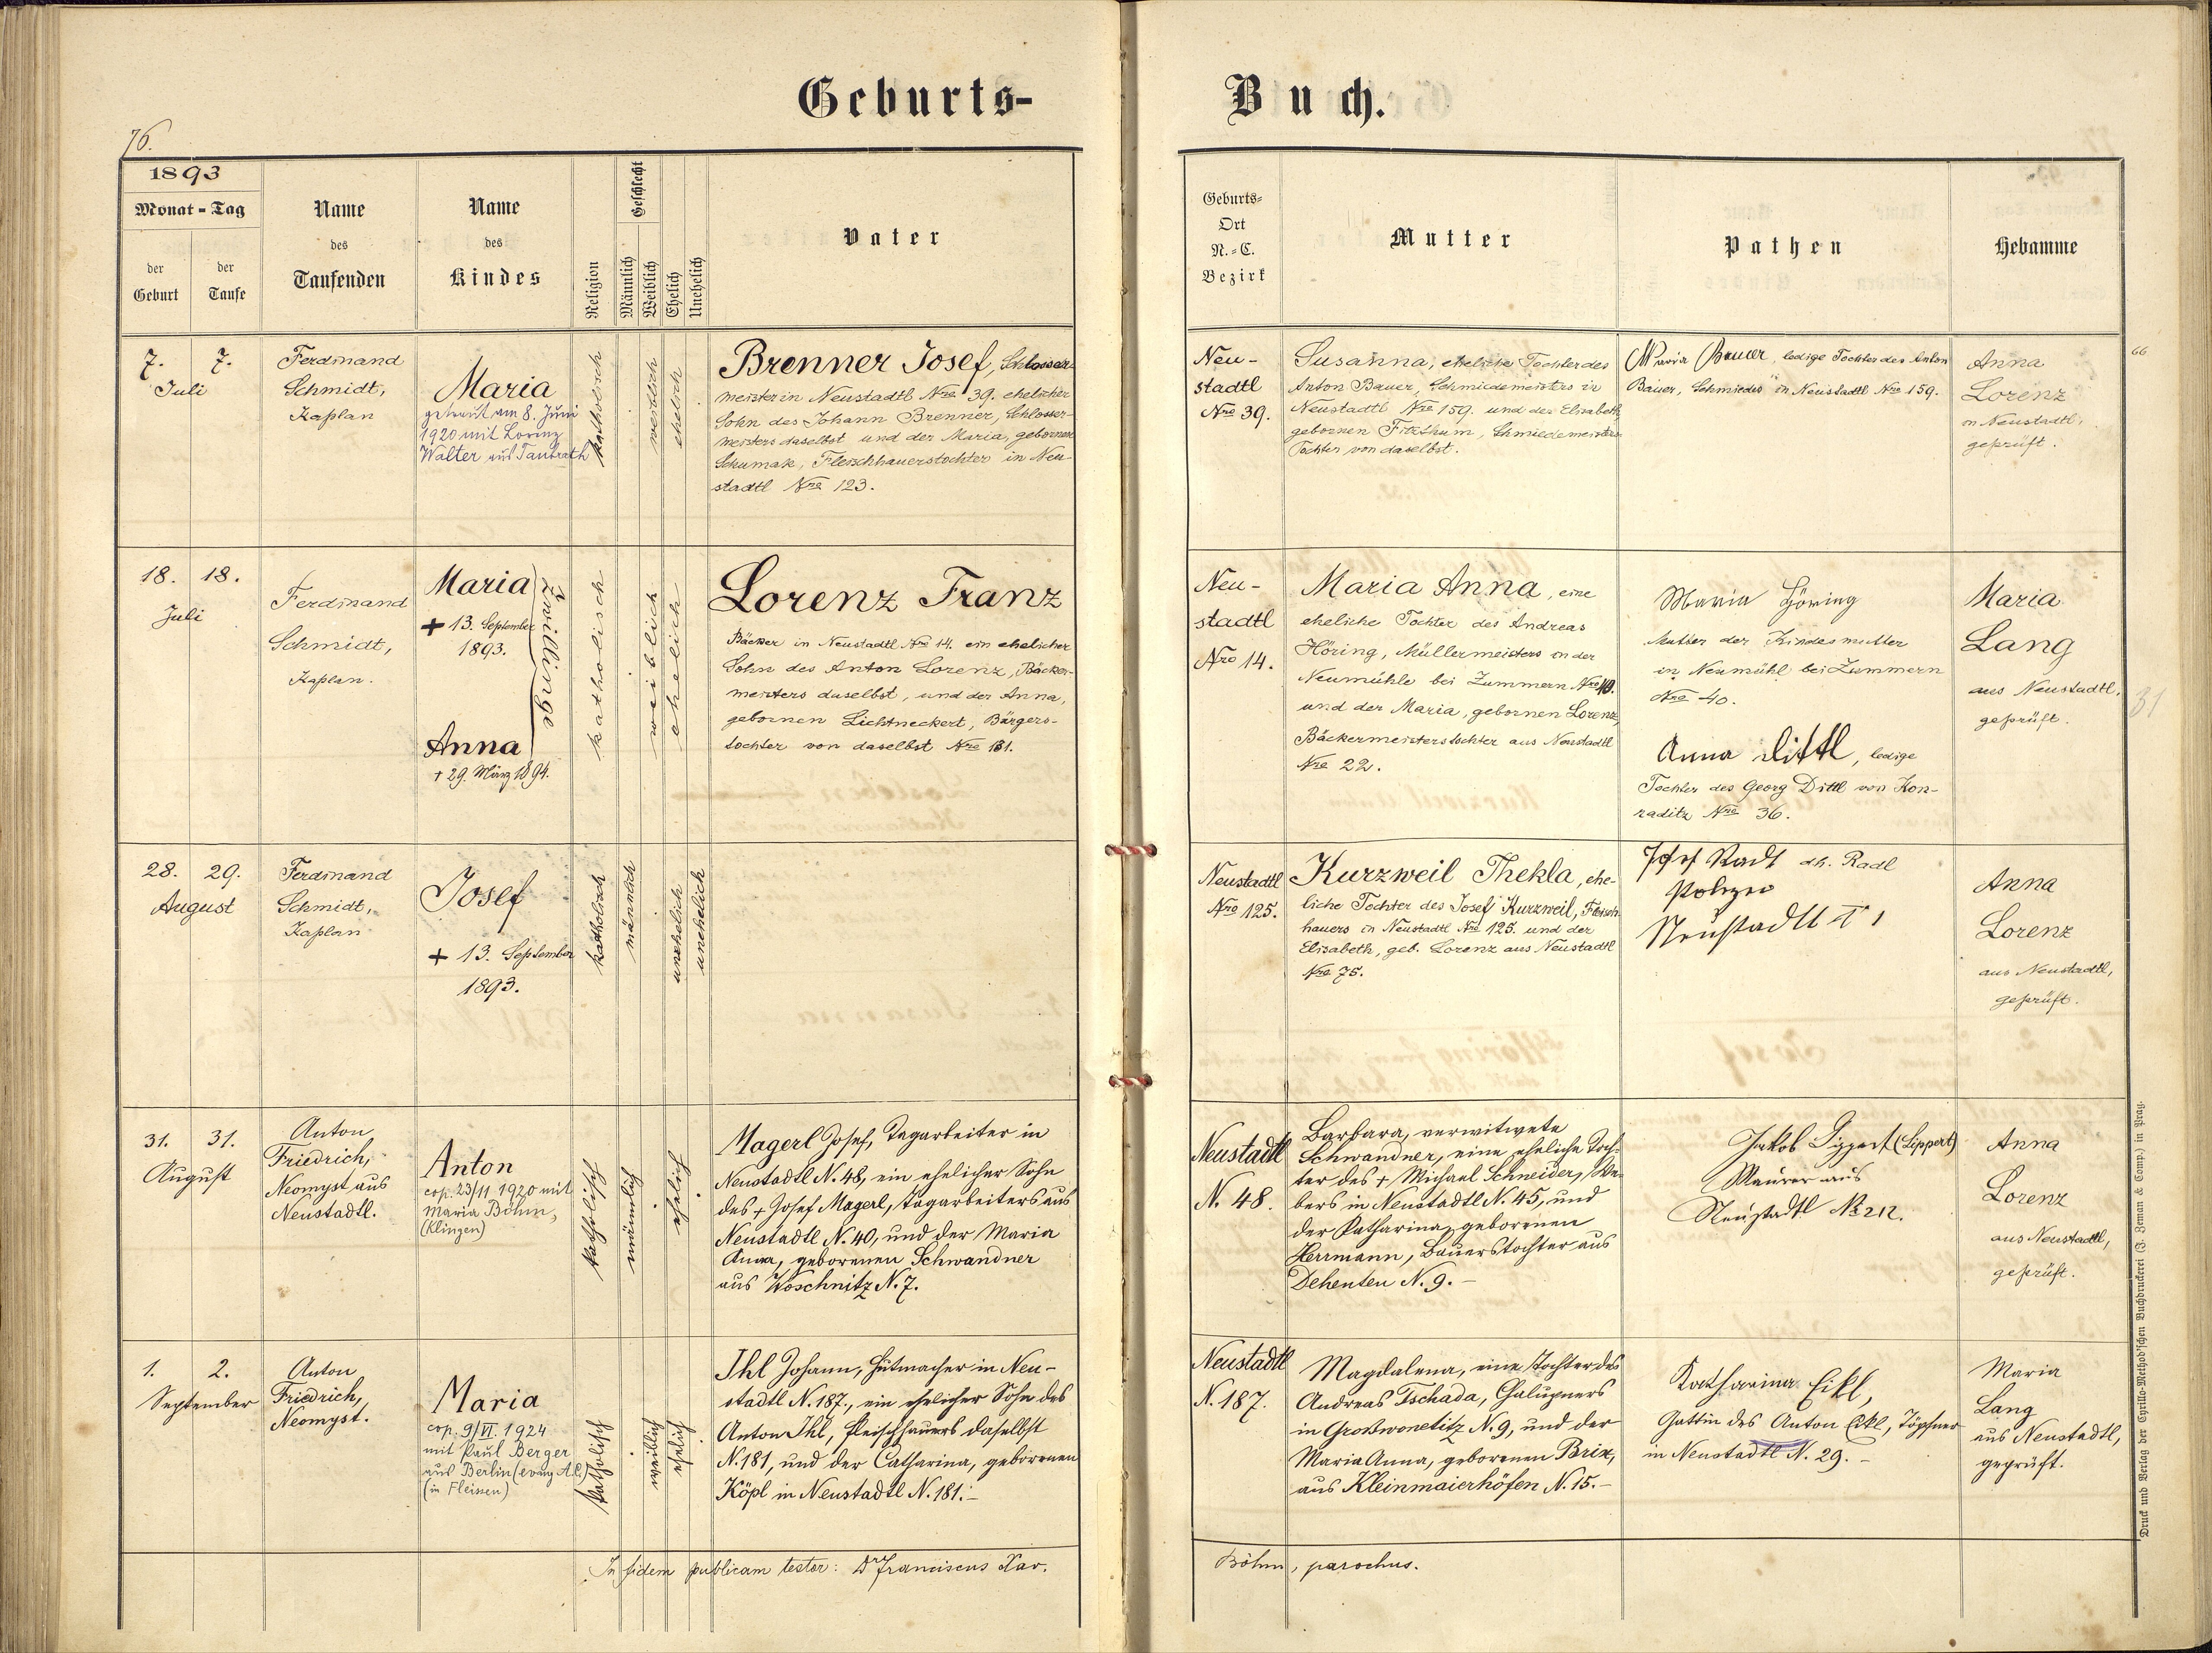 Geburts-
Buch.
76.
1893
Monat - Tag
der Geburt
der Taufe
Name
des
Taufenden
Name
des
Kindes
Religion
Geschlecht
Männlich
Weiblich
Ehelich
Unehelich
Vater
Geburts-
Ort
N.-C.
Bezirk
Mutter
Pathen
Hebamme
7. 7.
Juli
Ferdinand
Schmidt,
Kaplan
Maria
getraut am 8. Juni
1920 mit Lorenz
Walter aus Taubrath
katholisch
weiblich
ehelich
Brenner Josef, Schlosser-
meister in Neustadtl Nro 39. ehelicher
Sohn des Johann Brenner, Schlosser-
meisters daselbst und der Maria, gebornen
Schumak, Fleischhauerstochter in Neu-
stadtl Nro 123.
Neu-
stadtl
Nro 39.
Susanna, eheliche Tochter des
Anton Bauer, Schmiedemeisters in
Neustadtl Nro 159. und der Elisabeth,
gebornen Fitzthum, Schmiedemeisters-
Tochter von daselbst.
Maria Bauer, ledige Tochter des Anton
Bauer, Schmiedes in Neustadtl Nro 159.
Anna
Lorenz
in Neustadtl,
geprüft.
66
18. 18.
Juli
Ferdinand
Schmidt,
Kaplan.
Maria
+ 13. September
1893.
Zwillinge
Anna
+ 29. März 1894.
katholisch
weiblich
ehelich
Lorenz Franz
Bäcker in Neustadtl Nro 14. ein ehelicher
Sohn des Anton Lorenz, Bäcker-
meisters daselbst, und der Anna,
gebornen Lichtneckert, Bürgers-
tochter von daselbst Nro 181.
Neu-
stadtl
Nro 14.
Maria Anna, eine
eheliche Tochter des Andreas
Höring, Müllermeisters in der
Neumühle bei Zummern Nro 40.
und der Maria, gebornen Lorenz,
Bäckermeisterstochter aus Neustadtl
Nro 22.
Maria Höring
Mutter der Kindesmutter
in Neumühl bei Zummern
Nro 40.
Anna Dittl, ledige
Tochter des Georg Dittl von Kon-
raditz Nro 36.
Maria
Lang
aus Neustadtl,
geprüft.
31
28. 29.
August
Ferdinand
Schmidt,
Kaplan
Josef
+ 13. September
1893.
katholisch
männlich
unehelich
unehelich
Neustadtl
Nro 125.
Kurzweil Thekla, ehe-
liche Tochter des Josef Kurzweil, Fleisch-
hauers in Neustadtl Nro 125. und der
Elisabeth, geb. Lorenz aus Neustadtl
Nro 75.
Josef Radl dh. Radl
Polizei
Neustadtl N 1
Anna
Lorenz
aus Neustadtl,
geprüft.
31. 31.
August
Anton
Friedrich,
Neomyst aus
Neustadtl.
Anton
cop. 23/11 1920 mit
Maria Böhm,
(Klingen)
katholisch
männlich
ehelich
Magerl Josef, Tagarbeiter in
Neustadtl N. 48, ein ehelicher Sohn
des + Josef Magerl, Tagarbeiters aus
Neustadtl N. 40, und der Maria
Anna, geborenen Schwandner
aus Woschnitz N. 7.
Neustadtl
N. 48.
Barbara, verwitwete
Schwandner, eine eheliche Toch-
ter des + Michael Schneider, We-
bers in Neustadtl N. 45, und
der Katharina, geborenen
Herrmann, Bauerstochter aus
Dehenten N. 9. -
Jakob Lippert (Lippert)
Maurer aus
Neustadtl No 212.
Anna
Lorenz
aus Neustadtl,
geprüft.
1. 2.
September
Anton
Friedrich,
Neomyst.
Maria
cop. 9/VI. 1924
mit Paul Berger
aus Berlin (evang A.C.)
(in Fleissen)
katholisch
weiblich
ehelich
Ihl Johann, Hutmacher in Neu-
stadtl N. 187., ein ehelicher Sohn des
Anton Ihl, Fleischhauers daselbst
N. 181, und der Catharina, geborenen
Köpl in Neustadtl N. 181. -
Neustadtl
N. 187.
Magdalena, eine Tochter des
Andreas Tschada, Chalupners
in Grosswonetitz N. 9, und der
Maria Anna, geborenen Brix,
aus Kleinmaierhöfen N. 15. -
Katharina Eikl,
Gattin des Anton Eikl, Töpfner
in Neustadtl N. 29. -
Maria
Lang
aus Neustadtl,
geprüft.
In fidem publicam testor: Dr Franciscus Xav.
Böhm, parochus.
Druck und Verlag der Cyrillo-Method'schen Buchdruckerei (J. Zeman & Comp.) in Prag.